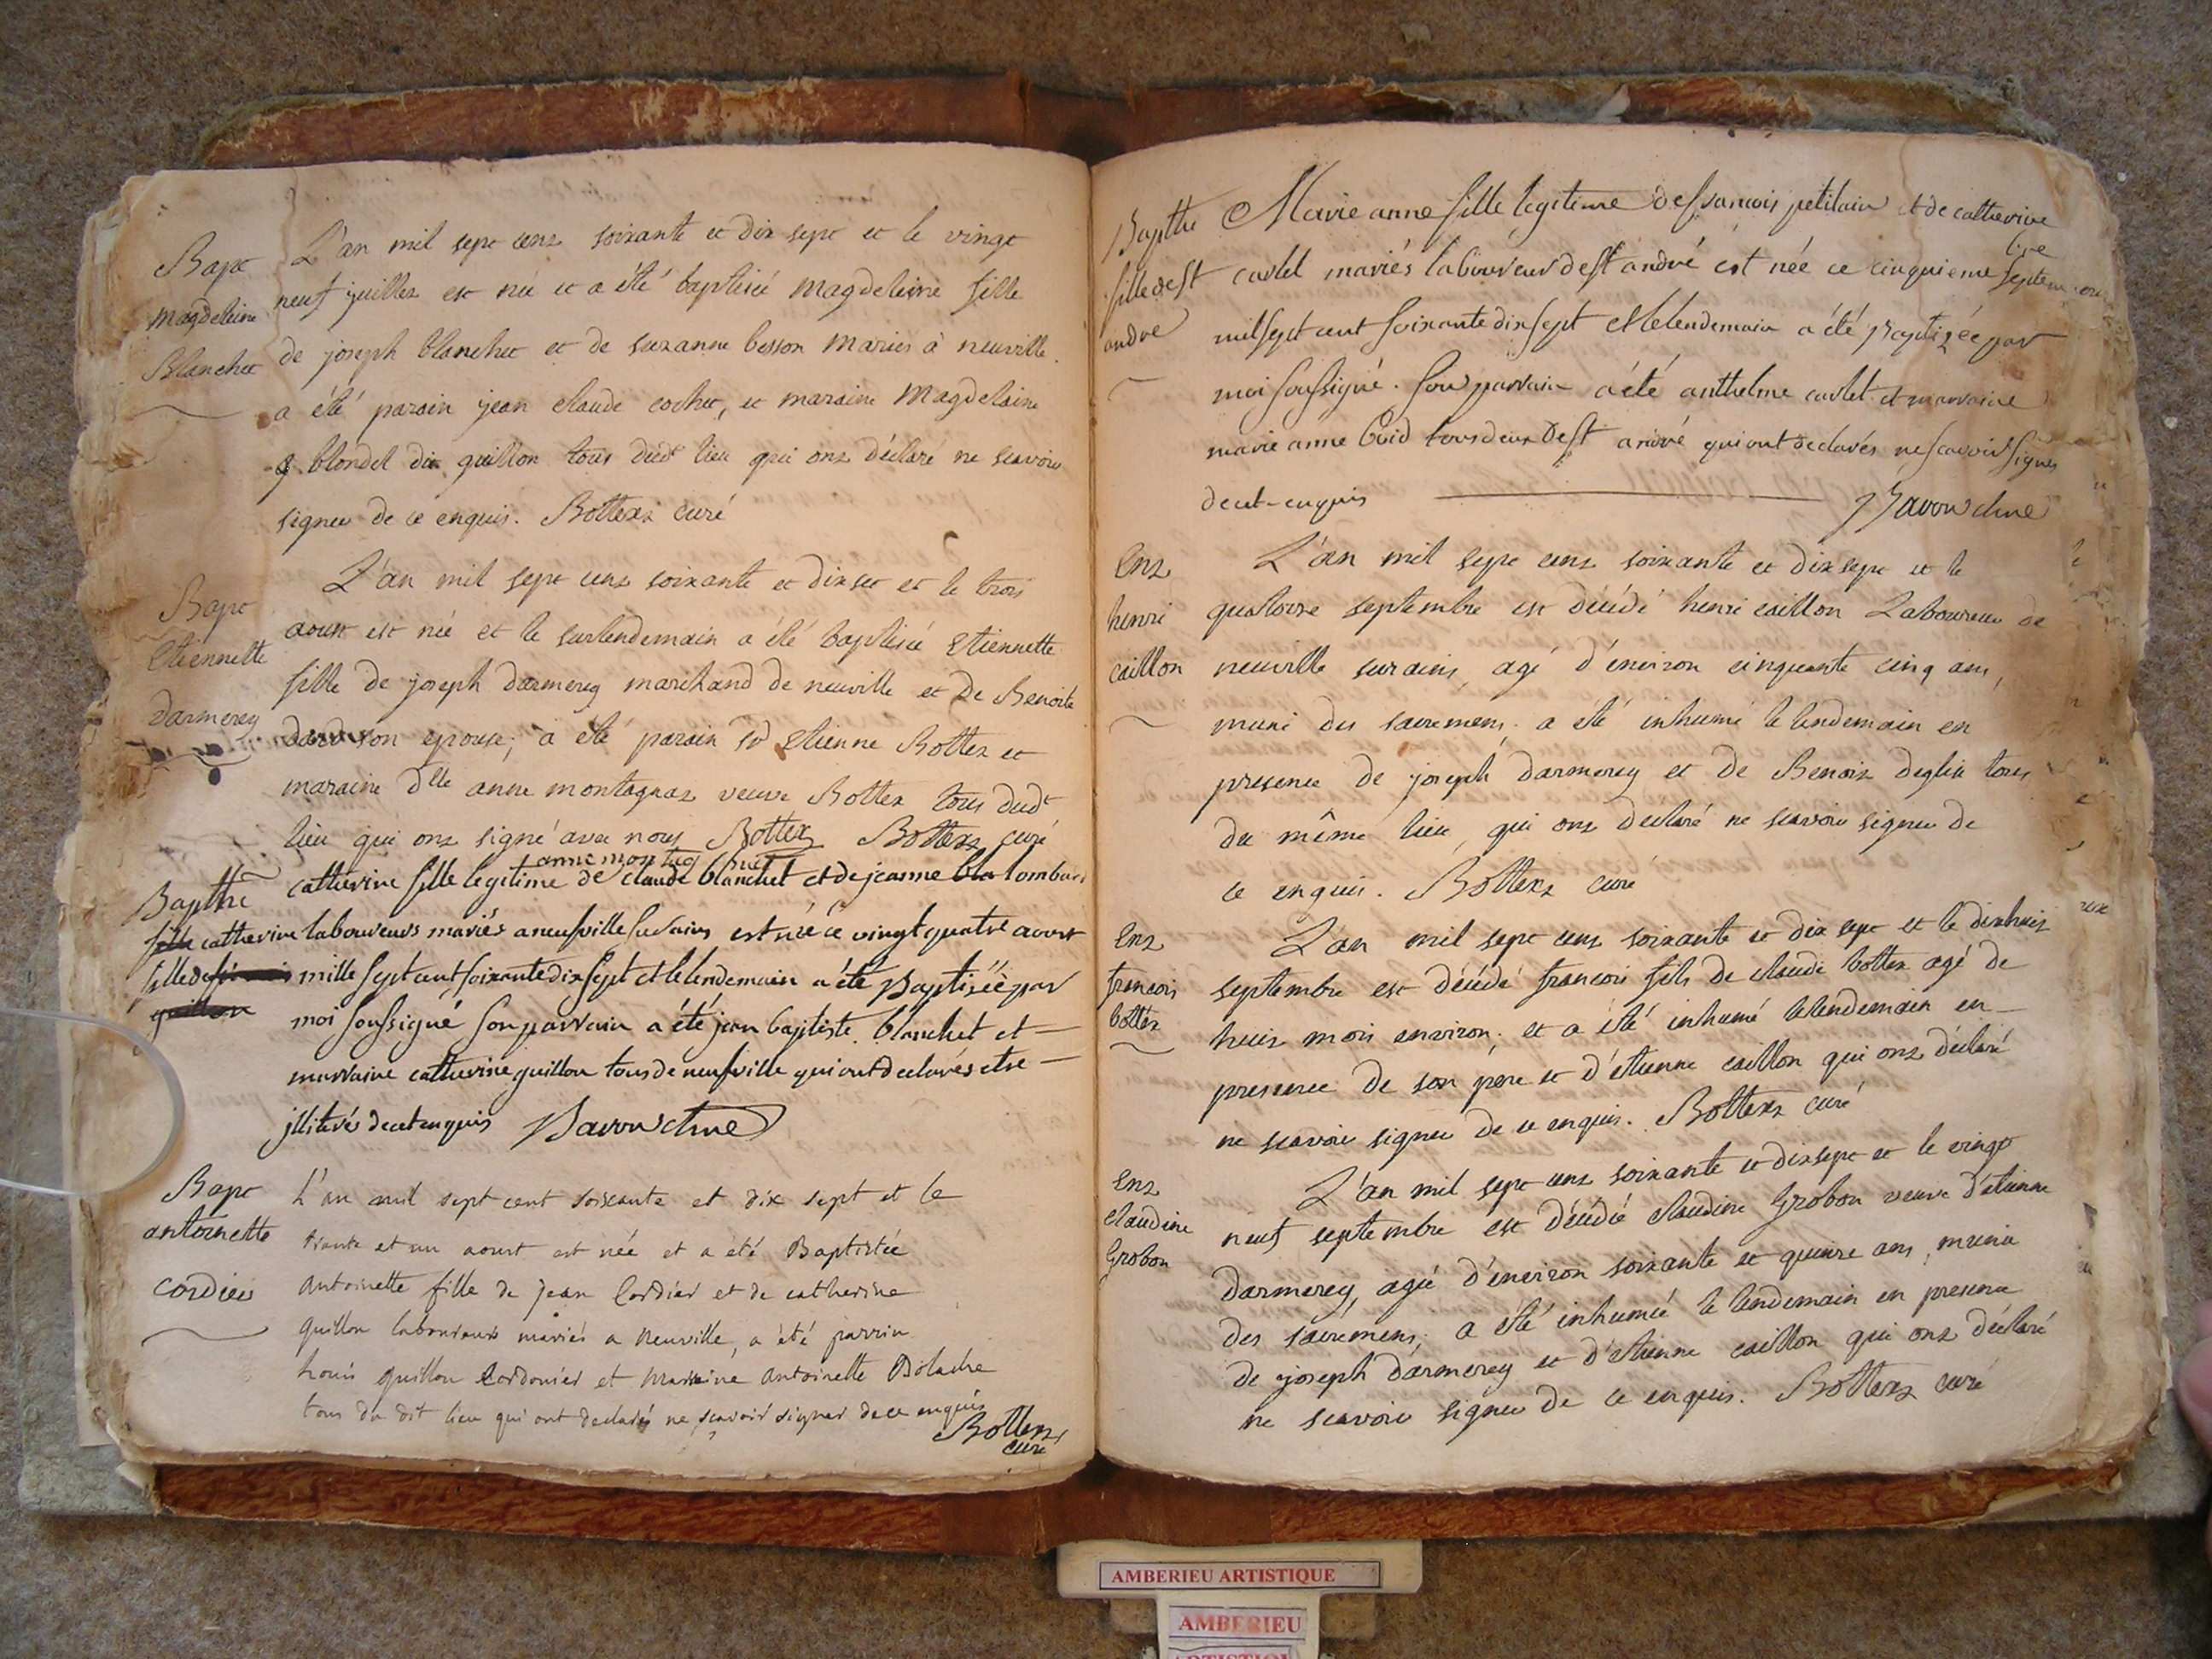 Bapt
Magdeleine
Blanchet
L'an mil sept cent soixante et dix sept et le vingt
neuf juillet est née et a été baptisée Magdeleine fille
de joseph blanchet et de suzanne besson mariés à neuville.
a été parain jean claude cochet, et maraine Magdelaine
blondel dit quillon tous dudt lieu qui ont déclaré ne scavoir
signer de ce enquis. Bottex curé
Bapt
Etiennette
Darmerey
L'an mil sept cent soixante et dix set et le trois
aoust est née et le surlendemain a été baptisée Etiennette
fille de joseph darmerey marchand de neuville et de Benoite
son epouse; a été parain sr Etienne Bottex et
maraine dlle anne montagnat veuve Bottex tous dudt
lieu qui ont signé avec nous Bottex Bottex curé
anne montag
Bapthe
fille catherine
fille de
quillon
catherine fille legitime de claude blanchet et de jeanne bla lombard
laboureurs mariés a neufville sur ains est née ce vingt quatre aoust
mille sept cent soixante dix sept et le lendemain a été Baptisée par
moi soussigné son parrain a été jean baptiste blanchet et
marraine catherine quillon tous de neufville qui ont declarés etre
illiterés de cet enquis
Bapt
antoinette
cordier
L'an mil sept cent soixante et dix sept et le
trante et un aoust est née et a été Baptistée
Antoinette fille de jean Cordier et de catherine
quillon laboureurs mariés a Neuville, a été parrin
louis quillon Cordonier et Marreine Antoinette
tous du dit lieu qui ont declarés ne scavoir signer de ce enquis
Bottex
curé
Bapthe
fille de st
andré
Marie anne fille legitime de francois petitain et de catherine
carlet mariés laboureur de st andré est née ce cinquieme septembre
mil sept cent soixante dix sept et le lendemain a été Baptizée par
moi soussigné. son parrain a été anthelme carlet et marraine
marie anne tous deux de st andré qui ont declarés ne scavoir signer
de cet enquis
Ent
henri
caillon
L'an mil sept cent soixante et dix sept et le
quatorze septembre est décédé henri caillon Laboureur de
neuville sur ains, agé d'environ cinquante cinq ans,
muni des sacremens; a été inhumé le lendemain en
presence de joseph darmerey et de Benoit deglise tous
du même lieu, qui ont declaré ne scavoir signer de
ce enquis. Bottex curé
Ent
francois
bottex
L'an mil sept cent soixante et dix sept et le dixhuit
septembre est décédé francois fils de claude bottex agé de
huit mois environ; et a été inhumé le lendemain en
presence de son père et d'étienne caillon qui ont déclaré
ne scavoir signer de ce enquis. Bottex curé
Ent
claudine
Grobon
L'an mil sept cent soixante et dix sept et le vingt
neuf septembre est décédée claudine Grobon veuve d'etienne
darmerey, agée d'environ soixante et quinze ans, munie
des sacremens; a été inhumée le lendemain en presence
de joseph darmerey et d'étienne caillon qui ont déclaré
ne scavoir signer de ce enquis. Bottex curé
AMBERIEU ARTISTIQUE
AMBERIEU
ARTISTIQUE